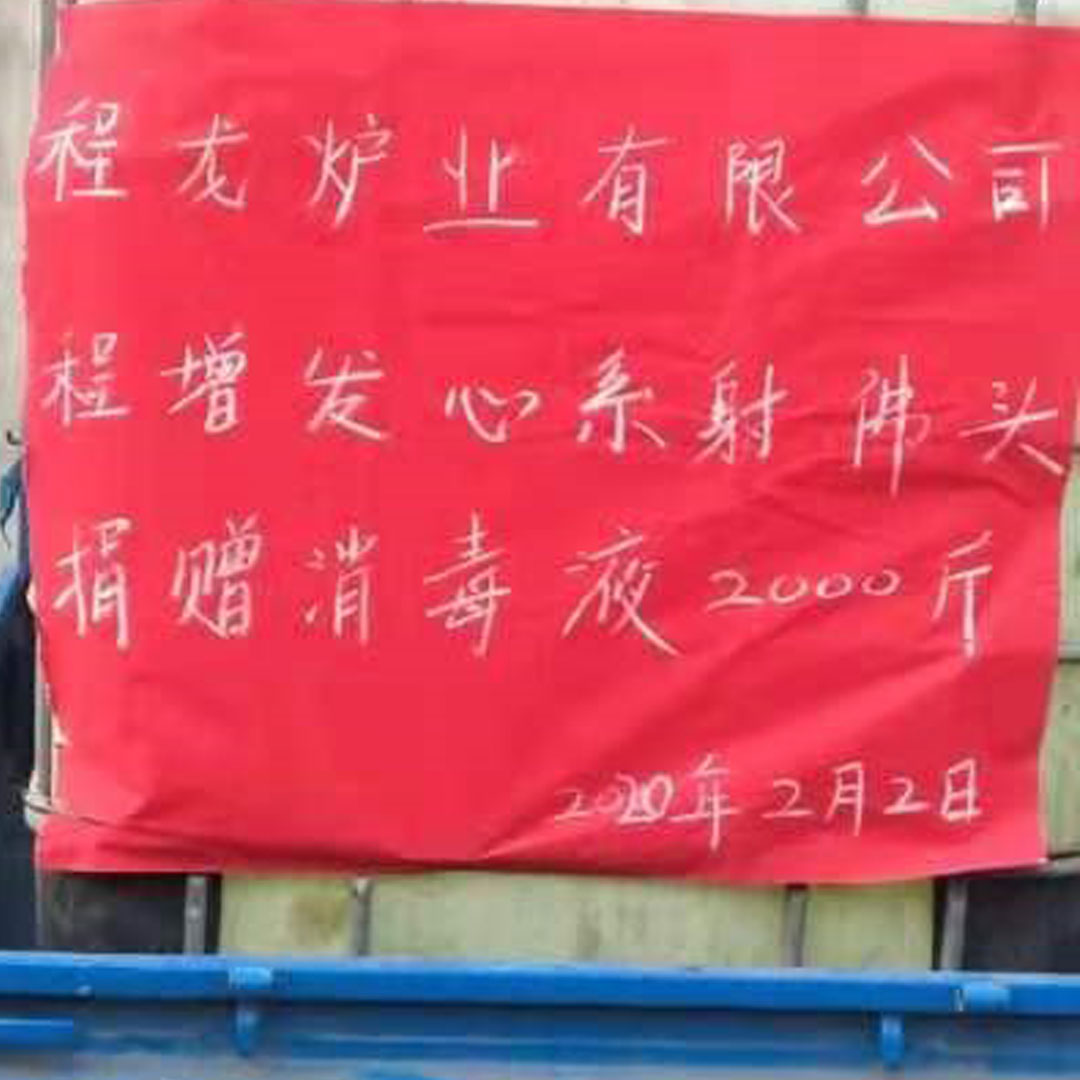 程龙炉业有限公司
程增发心系射佛头
捐赠消毒液2000斤
2020年2月2日